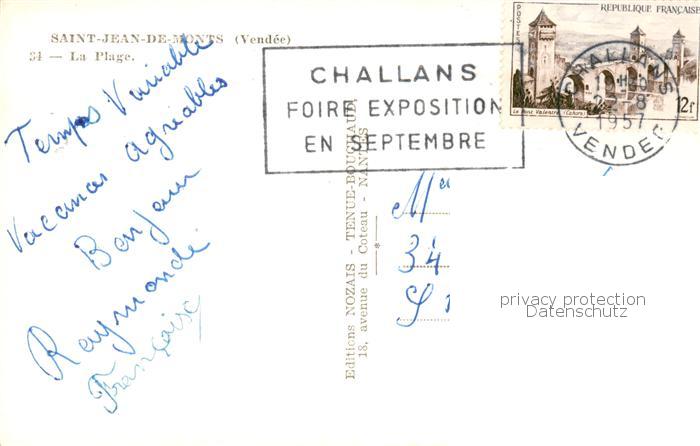 SAINT-JEAN-DE-MONTS (Vendée)
34 — La Plage.
Temps Variable
Vacances agréables
Bonjour
Raymonde
Françoise
Editions NOZAIS - TENUE-BOUCHAUD
18, avenue du Coteau - NANTES
CHALLANS
FOIRE EXPOSITION
EN SEPTEMBRE
REPUBLIQUE FRANÇAISE
POSTES
Le Pont Valentré (Cahors)
12f
CHALLANS
22-8
1957
VENDEE
34
privacy protection
Datenschutz